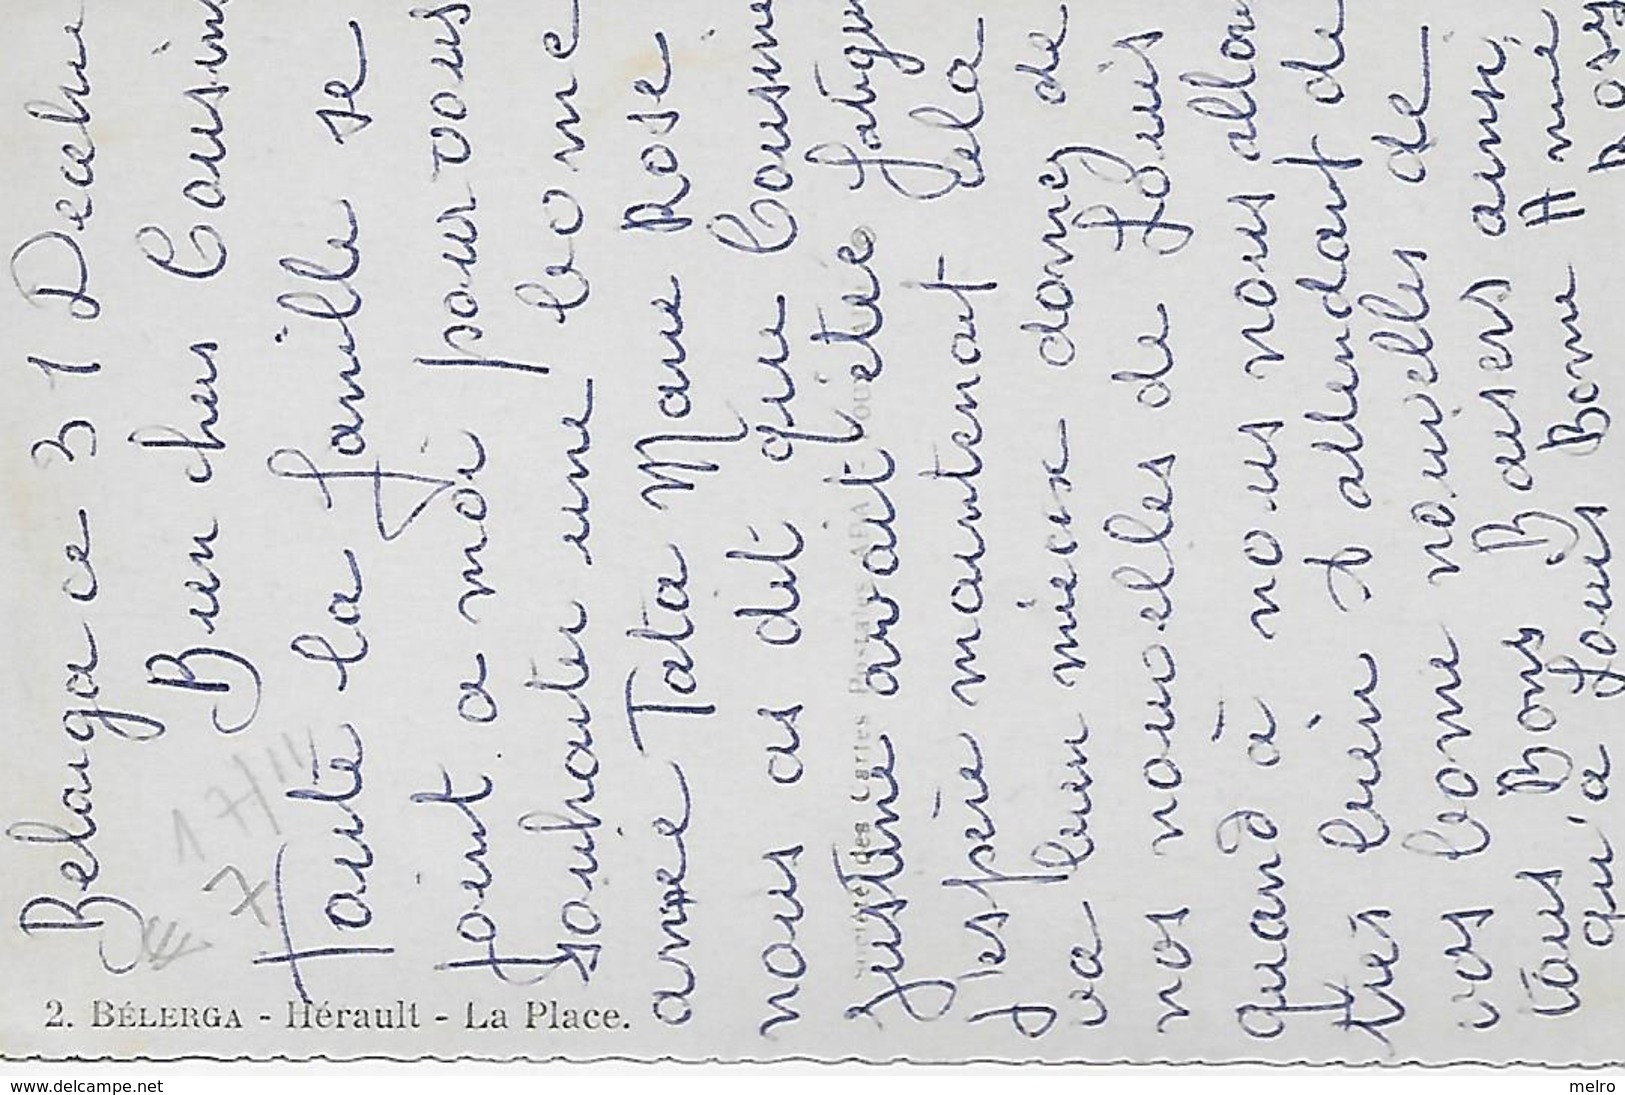 Belarga ce 31 Decebre
Bien chers Cousins
Toute la famille se
joint a moi pour vous
souhaiter une bone
année Tata Marie Rose
nous as dit que Cousine
Justine avait était fatigué
J'espère maintenant cela
va bien mieux doney de
nos nouvelles de Louis
quand à nous nous allons
très bien & attendant de
vos bone nouvelles de
tous Bons Baisers ainsi
qu'a Louis Bone Année
Rosy
7
17/III
2. BÉLERGA - Hérault - La Place.
www.delcampe.net
melro